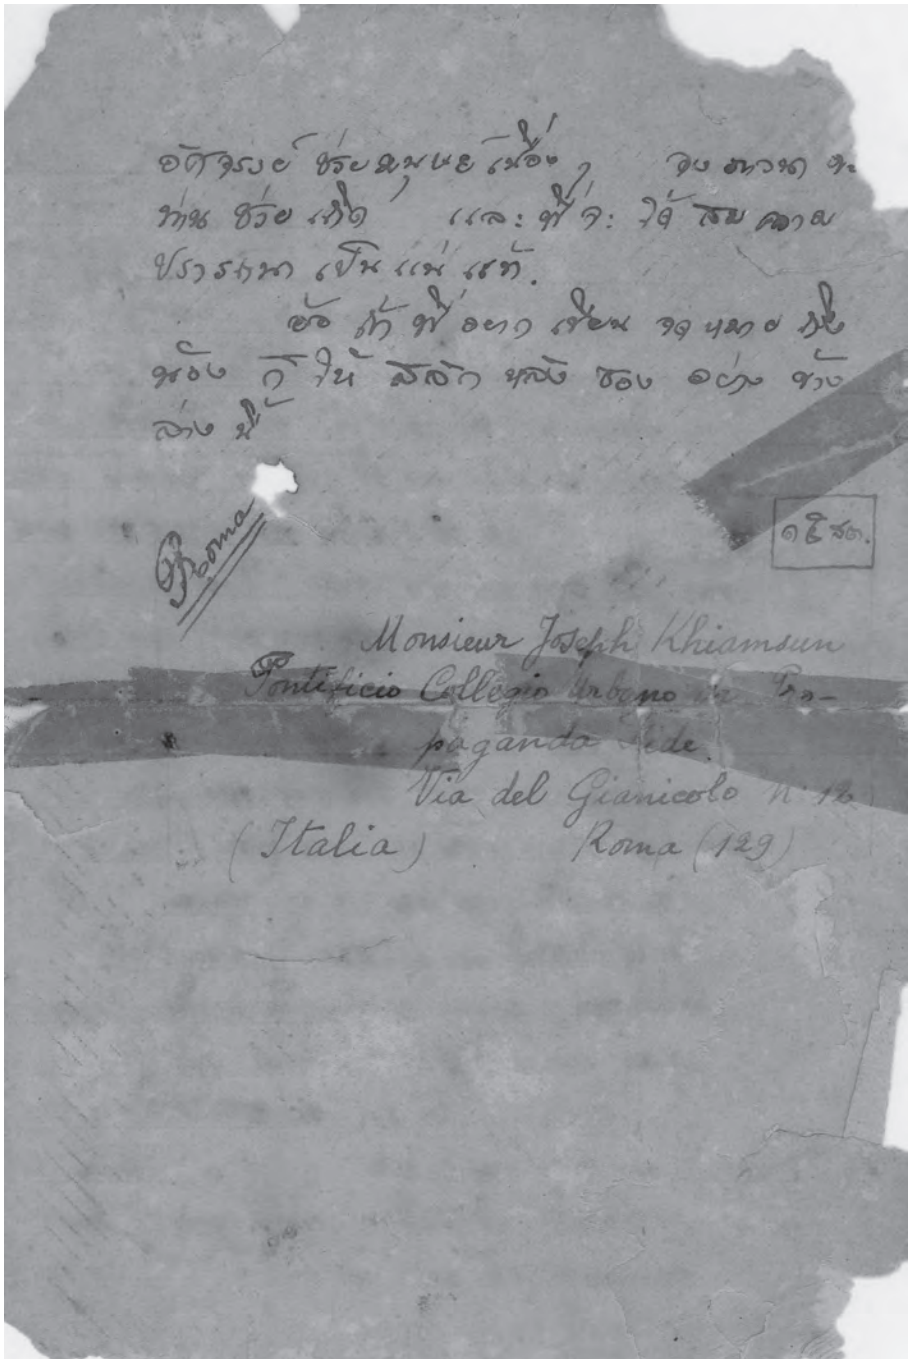 อัศจรรย์ ช่วยมนุษย์เนื่อง ๆ จงภาวนา
ท่าน ช่วย เถิด และ พี่ จะ ได้ สม ความ
ปรารถนา เป็น แน่ แท้.
อ้อ ถ้า พี่ อยาก เขียน จดหมาย ถึง
น้อง ก็ ให้ สลัก หลัง ซอง อย่าง ข้าง
ล่าง นี้
Roma
๑๕ สต.
Monsieur Joseph Khiamsun
Pontificio Collegio Urbano de Pro-
paganda Fide
Via del Gianicolo N. 12
(Italia) Roma (129)